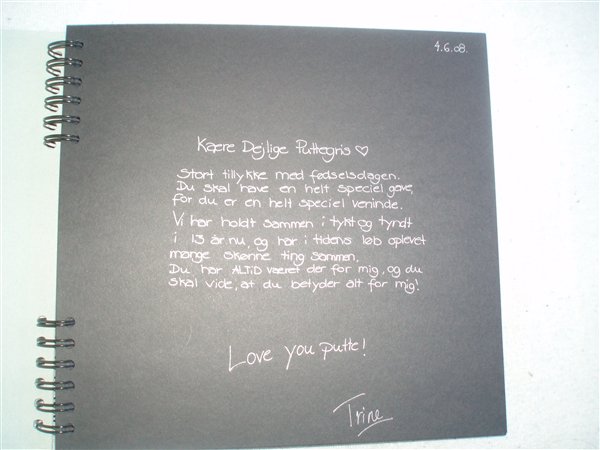 4.6.08.
Kære Dejlige Puttegris ♡
Stort tillykke med fødselsdagen.
Du skal have en helt speciel gave,
for du er en helt speciel veninde.
Vi har holdt sammen i tykt og tyndt
i 13 år nu, og har i tidens løb oplevet
mange skønne ting sammen.
Du har ALTID været der for mig, og du
skal vide, at du betyder alt for mig!
Love you putte!
Trine